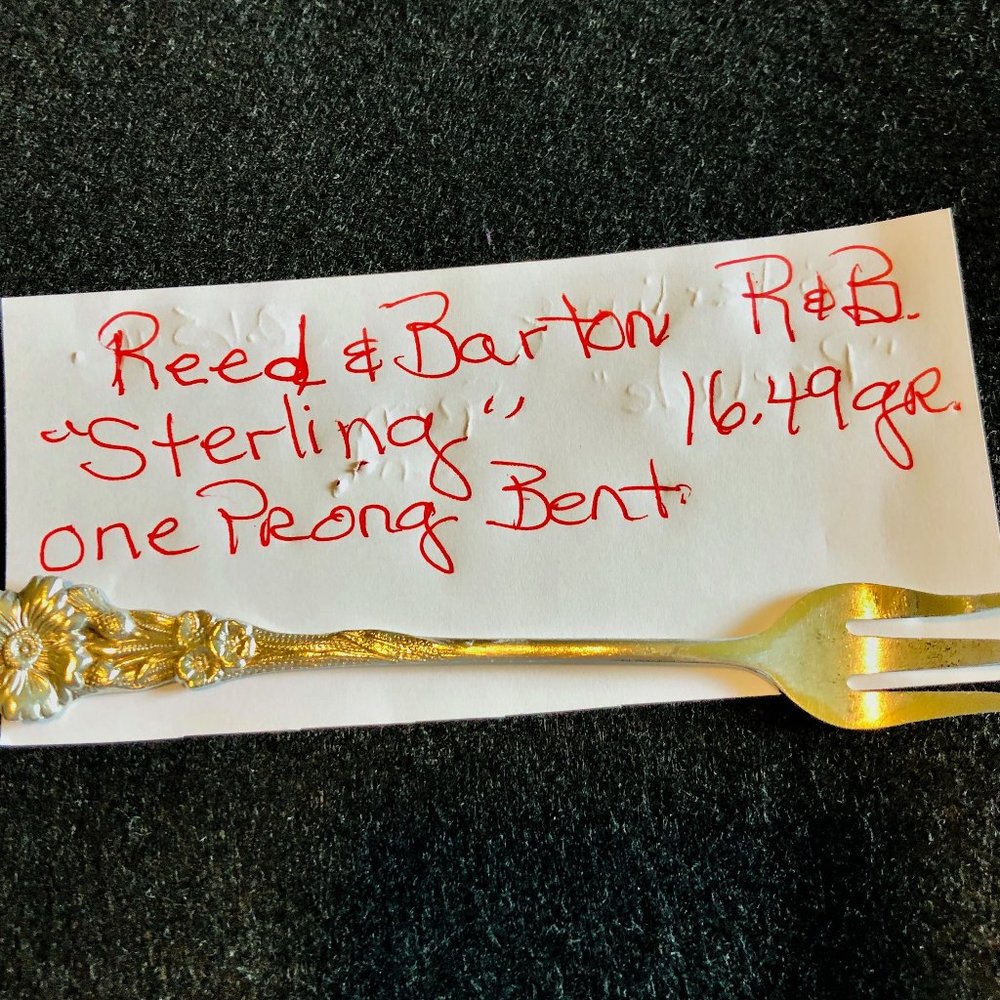 Reed & Barton R&B.
"Sterling" 16.49gr.
one Prong Bent.